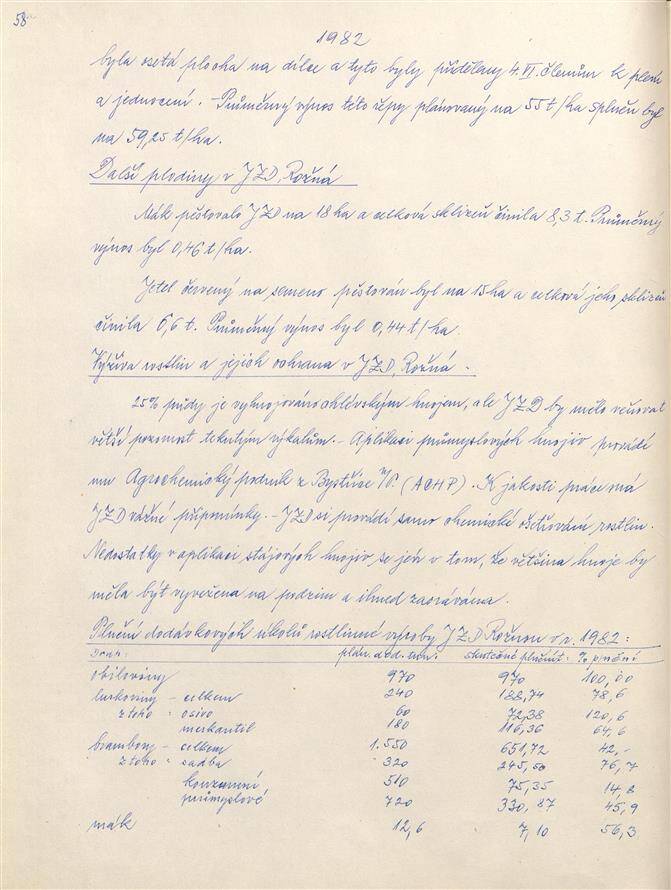 58
1982
byla osetá plocha na dílce a tyto byly přiděleny 4.VI. členům k plení
a jednocení. - Průměrný výnos této řepy plánovaný na 55 t/ha splněn byl
na 59,25 t/ha.
Další plodiny v JZD, Rožná
Mák pěstovalo JZD na 18 ha a celková sklizeň činila 8,3 t. Průměrný
výnos byl 0,46 t/ha.
Jetel červený na semeno pěstován byl na 15 ha a celková jeho sklizeň
činila 6,6 t. Průměrný výnos byl 0,44 t/ha.
Výživa rostlin a jejich ochrana v JZD, Rožná.
25% půdy je vyhnojováno chlévským hnojem, ale JZD by mělo věnovat
větší pozornost tekutým výkalům. - Aplikaci průmyslových hnojiv provádí
mu Agrochemický podnik z Bystřice n/P. (ACHP). K jakosti práce má
JZD vážné připomínky. - JZD si provádí samo chemické ošetřování rostlin.
Nedostatky v aplikaci stájových hnojiv se jeví v tom, že většina hnoje by
měla být vyvežena na podzim a ihned zaorávána.
Plnění dodávkových úkolů rostlinné výroby JZD Rožnou v r. 1982:
Druh: plán. dod. sml. skutečné plnění t: % plnění
obiloviny 970 970 100,00
luskoviny - celkem 240 188,74 78,6
z toho: osivo 60 72,38 120,6
merkantil 180 116,36 64,6
brambory - celkem 1.550 651,72 42,-
z toho: sadba 320 245,50 76,7
konzumní 510 75,35 14,8
průmyslové 720 330,87 45,9
mák 12,6 7,10 56,3